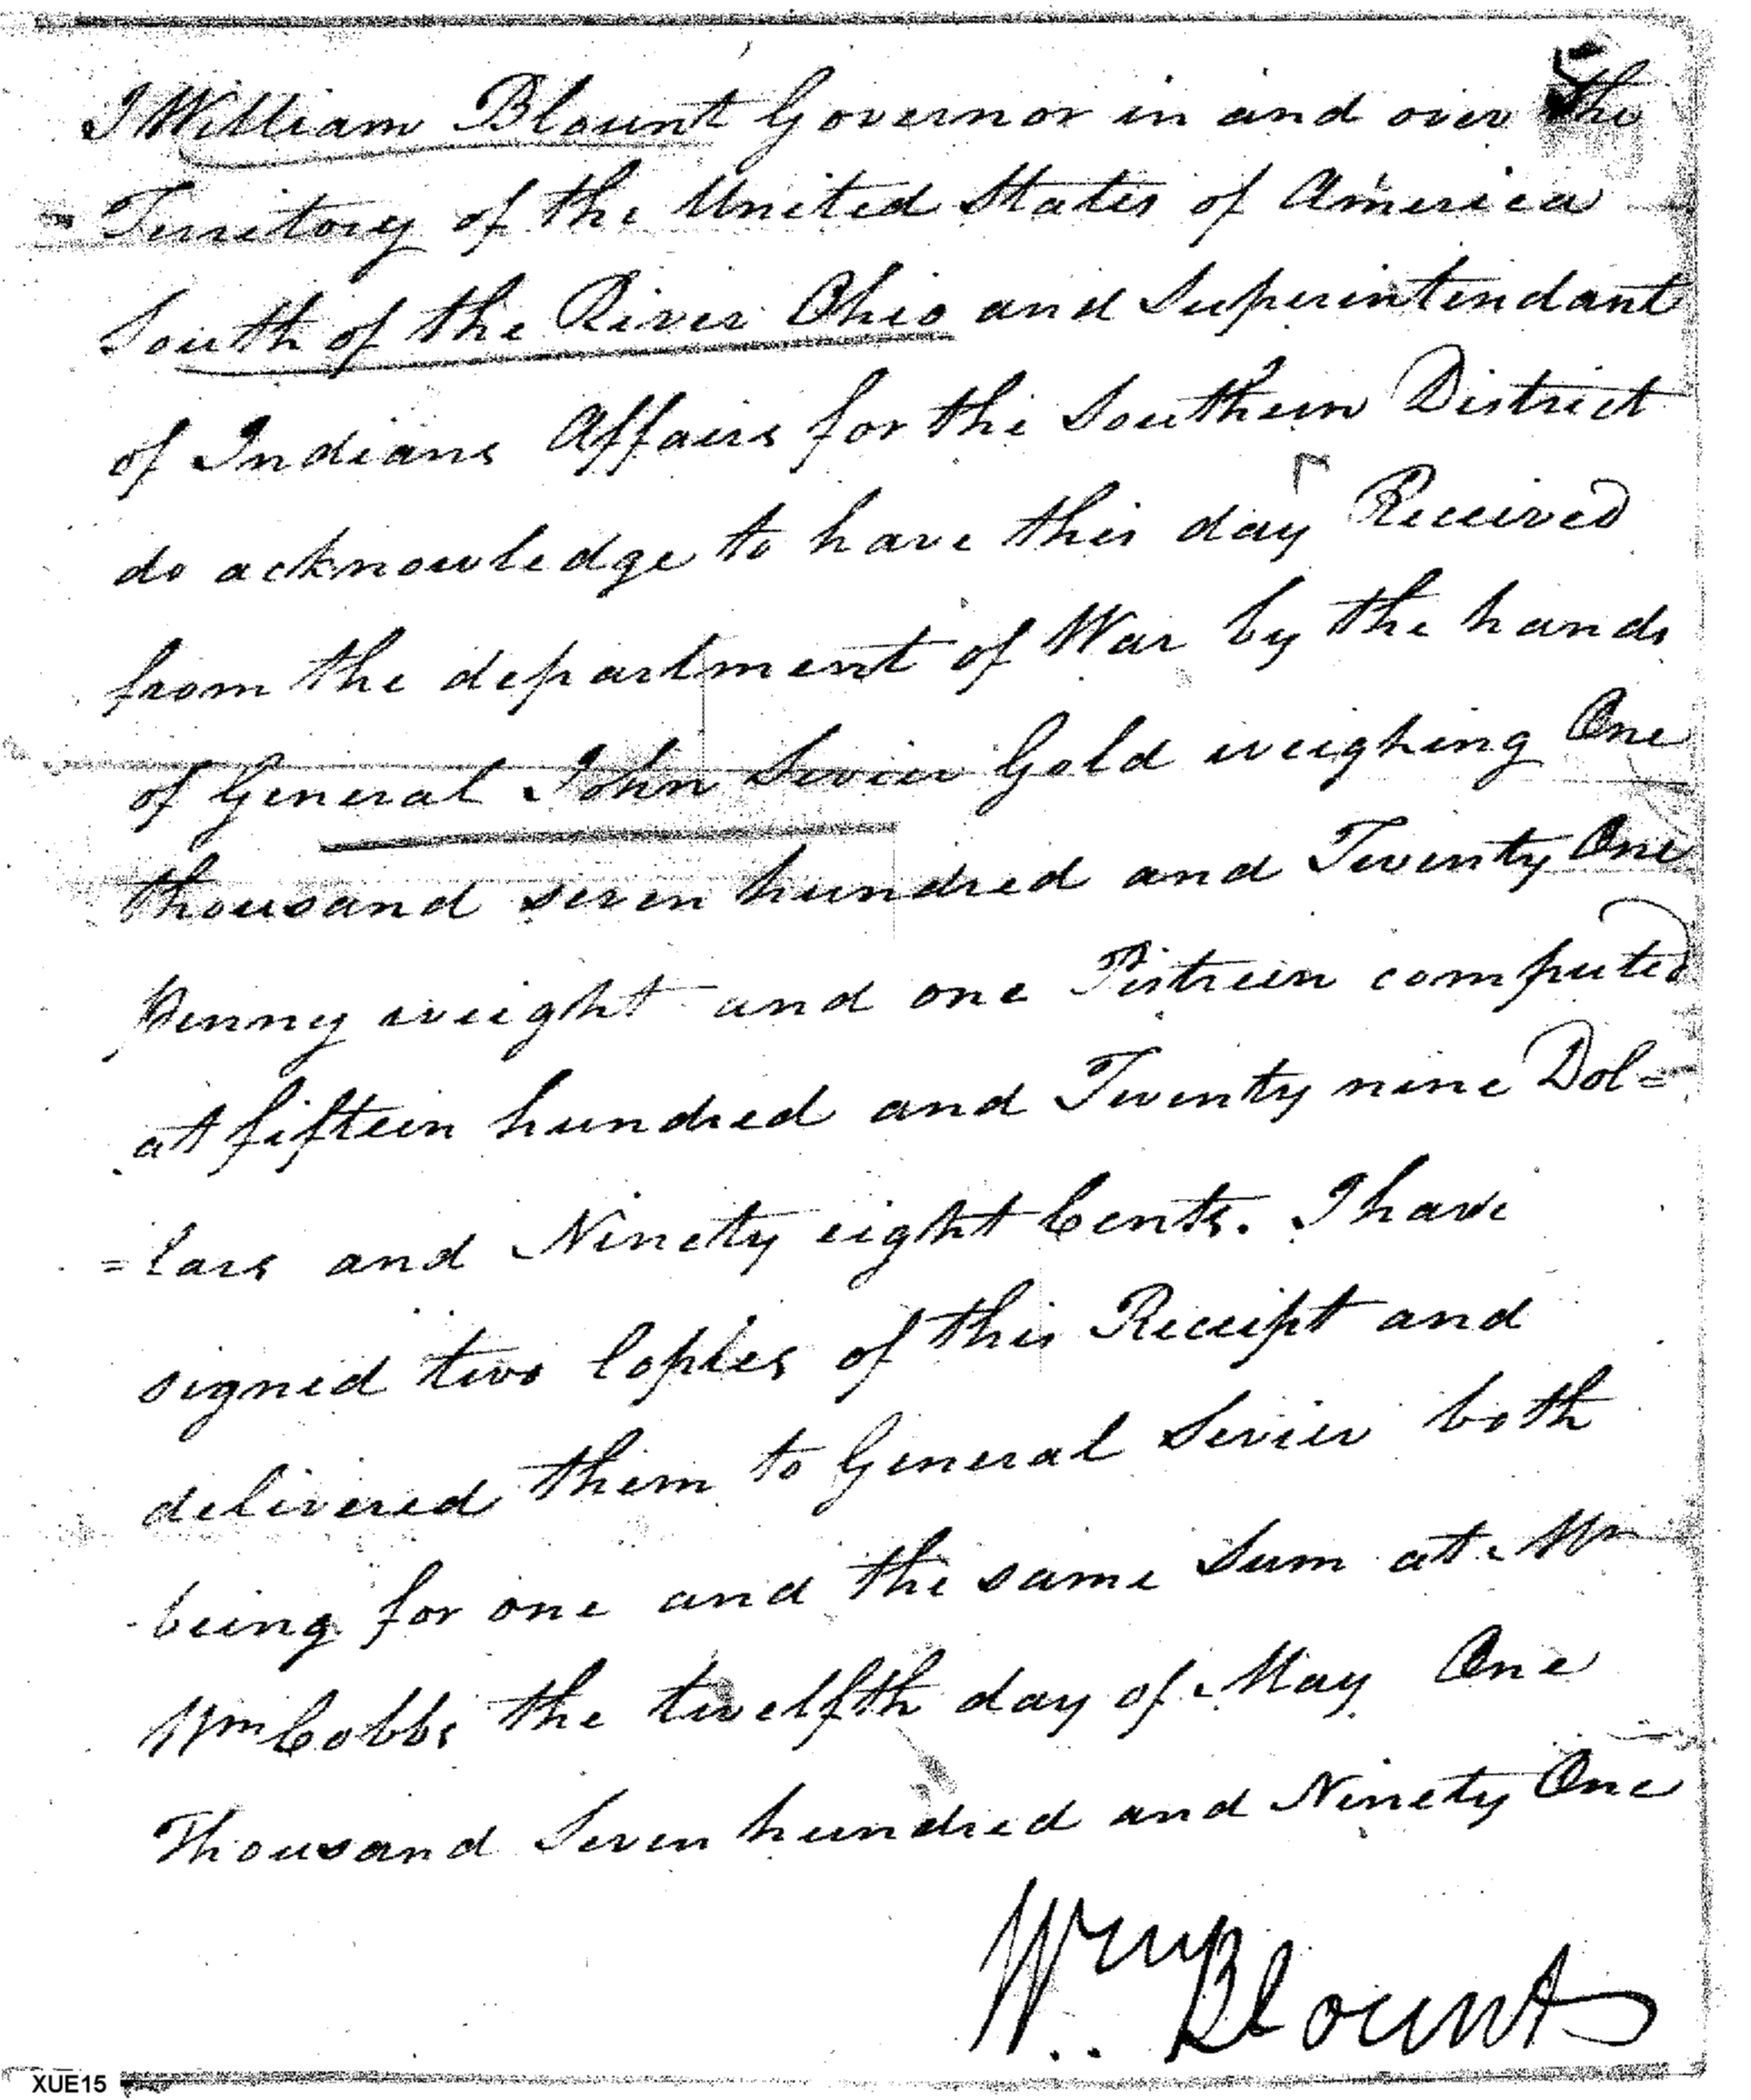 I William Blount Governor in and over the
Territory of the United States of America
South of the River Ohio and Superintendant
of Indians Affairs for the Southern District
do acknowledge to have this day Received
from the department of War by the hands
of General John Sevier Gold weighing One
thousand seven hundred and Twenty One
penny weight and one Pistreen computed
at fifteen hundred and Twenty nine Dol=
=lars and Ninety eight Cents. I have
signed two Copies of this Receipt and
delivered them to General Sevier both
being for one and the same Sum at Mr
Wm Cobbs the twelfth day of May One
Thousand Seven hundred and Ninety One
Wm Blount
XUE15